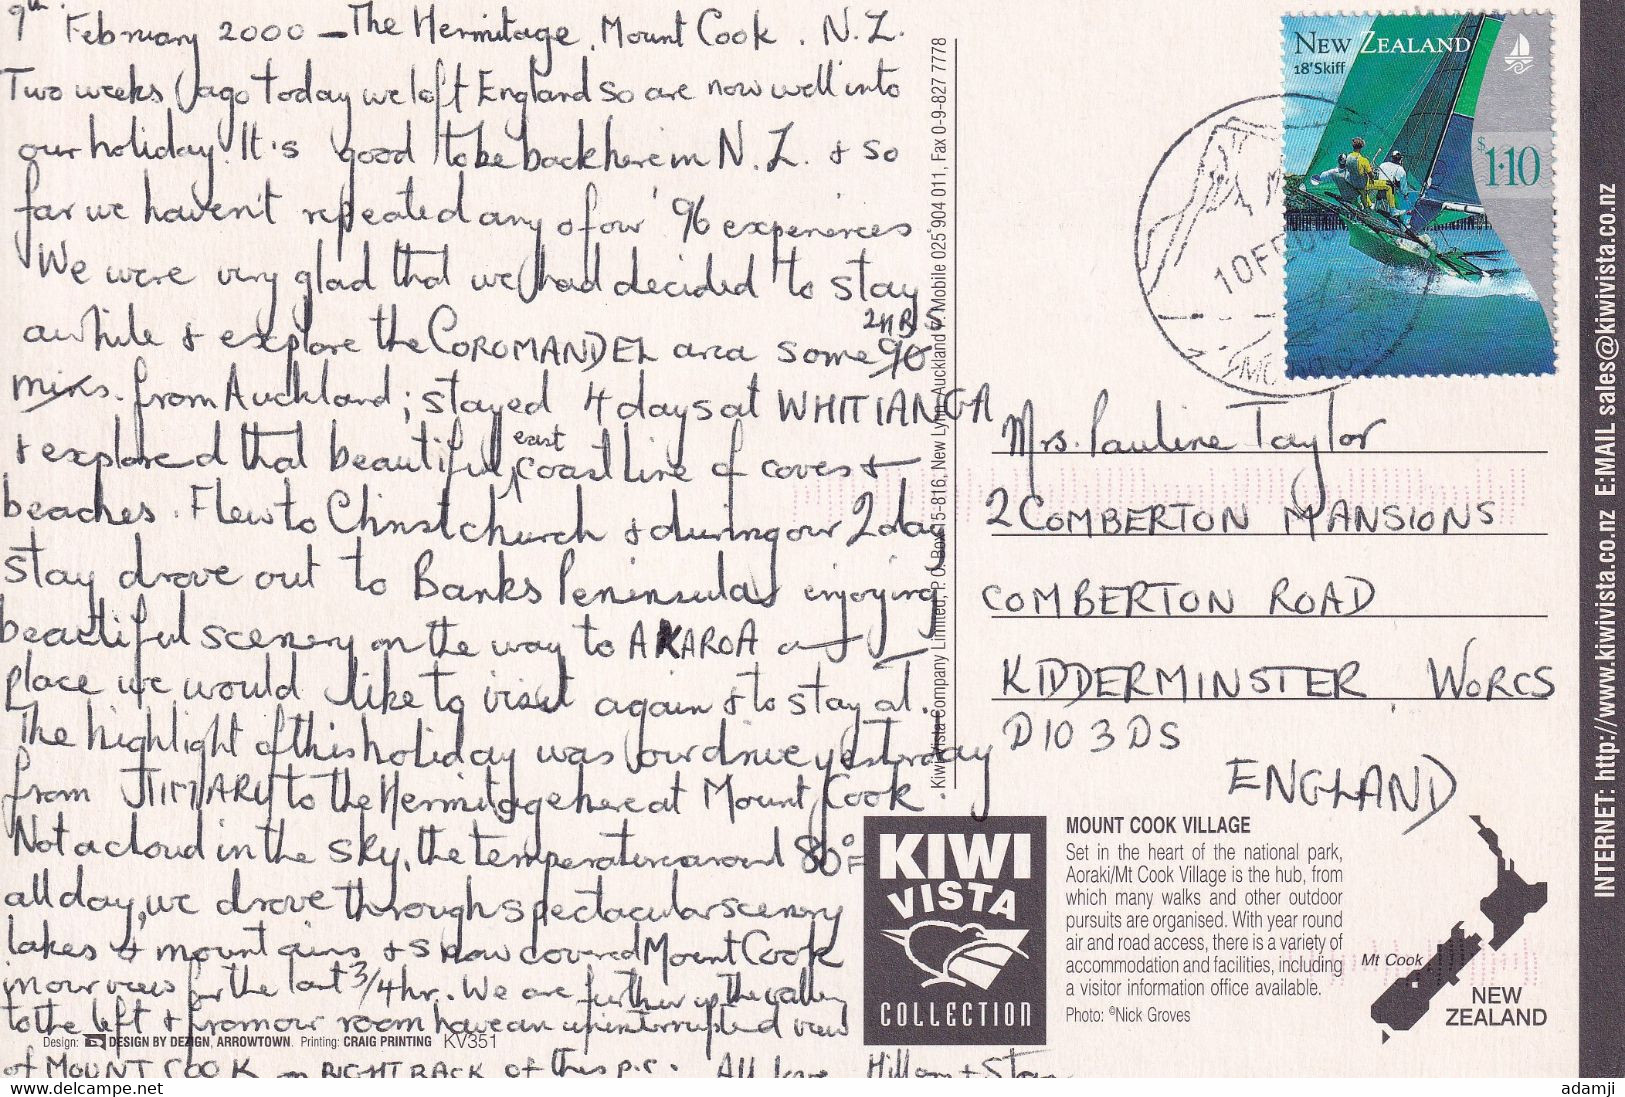 9th February 2000 – The Hermitage, Mount Cook. N.Z.
Two weeks ago today we left England so are now well into
our holiday. It's good to be back here in N.Z. & so
far we haven't repeated any of our '96 experiences
We were very glad that we had decided to stay
awhile & explore the COROMANDEL area some 90 2HRS
mins. from Auckland; stayed 4 days at WHITIANGA
& explored that beautiful, east coastline of coves &
beaches. Flew to Christchurch & during our 2 day
stay drove out to Banks Peninsula enjoying
beautiful scenery on the way to AKAROA a
place we would like to visit again & to stay at.
The highlight of this holiday was our drive yesterday
from TIMARU to the Hermitage here at Mount Cook.
Not a cloud in the sky, the temperature around 80°F
all day, we drove through spectacular scenery
lakes & mountains & snow covered Mount Cook
in our views for the last 3/4 hr. We are further up the valley
to the left & from our room have an uninterrupted view
of MOUNT COOK on RIGHT BACK of this p.c. All love
NEW ZEALAND
18' Skiff
$1.10
10 FEB
Mrs. Pauline Taylor
2 COMBERTON MANSIONS
COMBERTON ROAD
KIDDERMINSTER, WORCS
D10 3DS
ENGLAND
Kiwi Vista Company Limited, P.O. Box 15-816, New Lynn, Auckland Mobile 025 904 011, Fax 0-9-827 7778
INTERNET: http://www.kiwivista.co.nz E:MAIL sales@kiwivista.co.nz
KIWI
VISTA
COLLECTION
MOUNT COOK VILLAGE
Set in the heart of the national park,
Aoraki/Mt Cook Village is the hub, from
which many walks and other outdoor
pursuits are organised. With year round
air and road access, there is a variety of
accommodation and facilities, including
a visitor information office available.
Photo: ©Nick Groves
Mt Cook
NEW
ZEALAND
Design: DESIGN BY DEZIGN, ARROWTOWN. Printing: CRAIG PRINTING KV351
www.delcampe.net
adamji